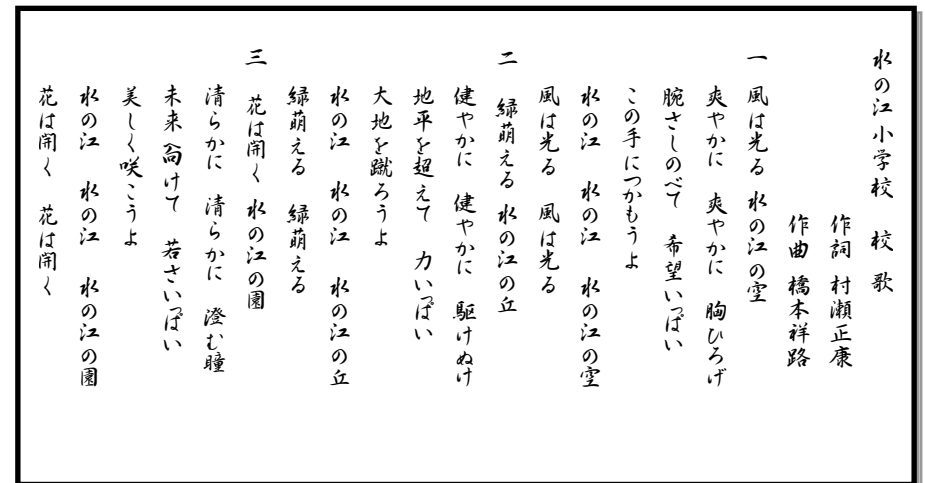 水の江小学校　校　歌
作詞　村瀬正康
作曲　橋本祥路
一　風は光る　水の江の空
爽やかに　爽やかに　胸ひろげ
腕さしのべて　希望いっぱい
この手につかもうよ
水の江　水の江　水の江の空
風は光る　風は光る
二　緑萌える　水の江の丘
健やかに　健やかに　駆けぬけ
地平を超えて　力いっぱい
大地を蹴ろうよ
水の江　水の江　水の江の丘
緑萌える　緑萌える
三　花は開く　水の江の園
清らかに　清らかに　澄む瞳
未来へ向けて　若さいっぱい
美しく咲こうよ
水の江　水の江　水の江の園
花は開く　花は開く